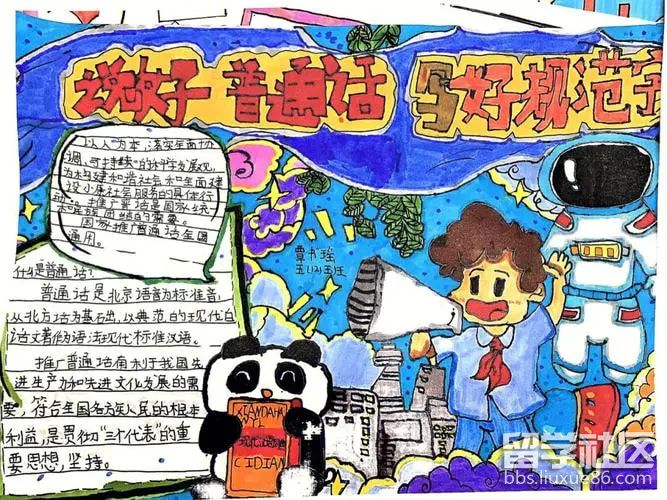 说好普通话 写好规范字
以人为本,落实全面协
调、可持续的科学发展观,
为构建和谐社会和全面建
设小康社会服务的具体行
动。推广普通话是国家统
国家推广普通话全国
通用。
什么是普通话?
普通话是北京语言为标准音,
以北方话为基础,以典范的现代白
话文著作为语法现代标准汉语。
推广普通话有利于我国先
进生产力和先进文化发展的需
要,符合全国各方族人民的根本
利益,是贯彻“三个代表”的重
要思想,坚持。
覃书瑶
XIANDAI
现代汉语
CIDIAN
留学社区
bbs.liuxue86.com